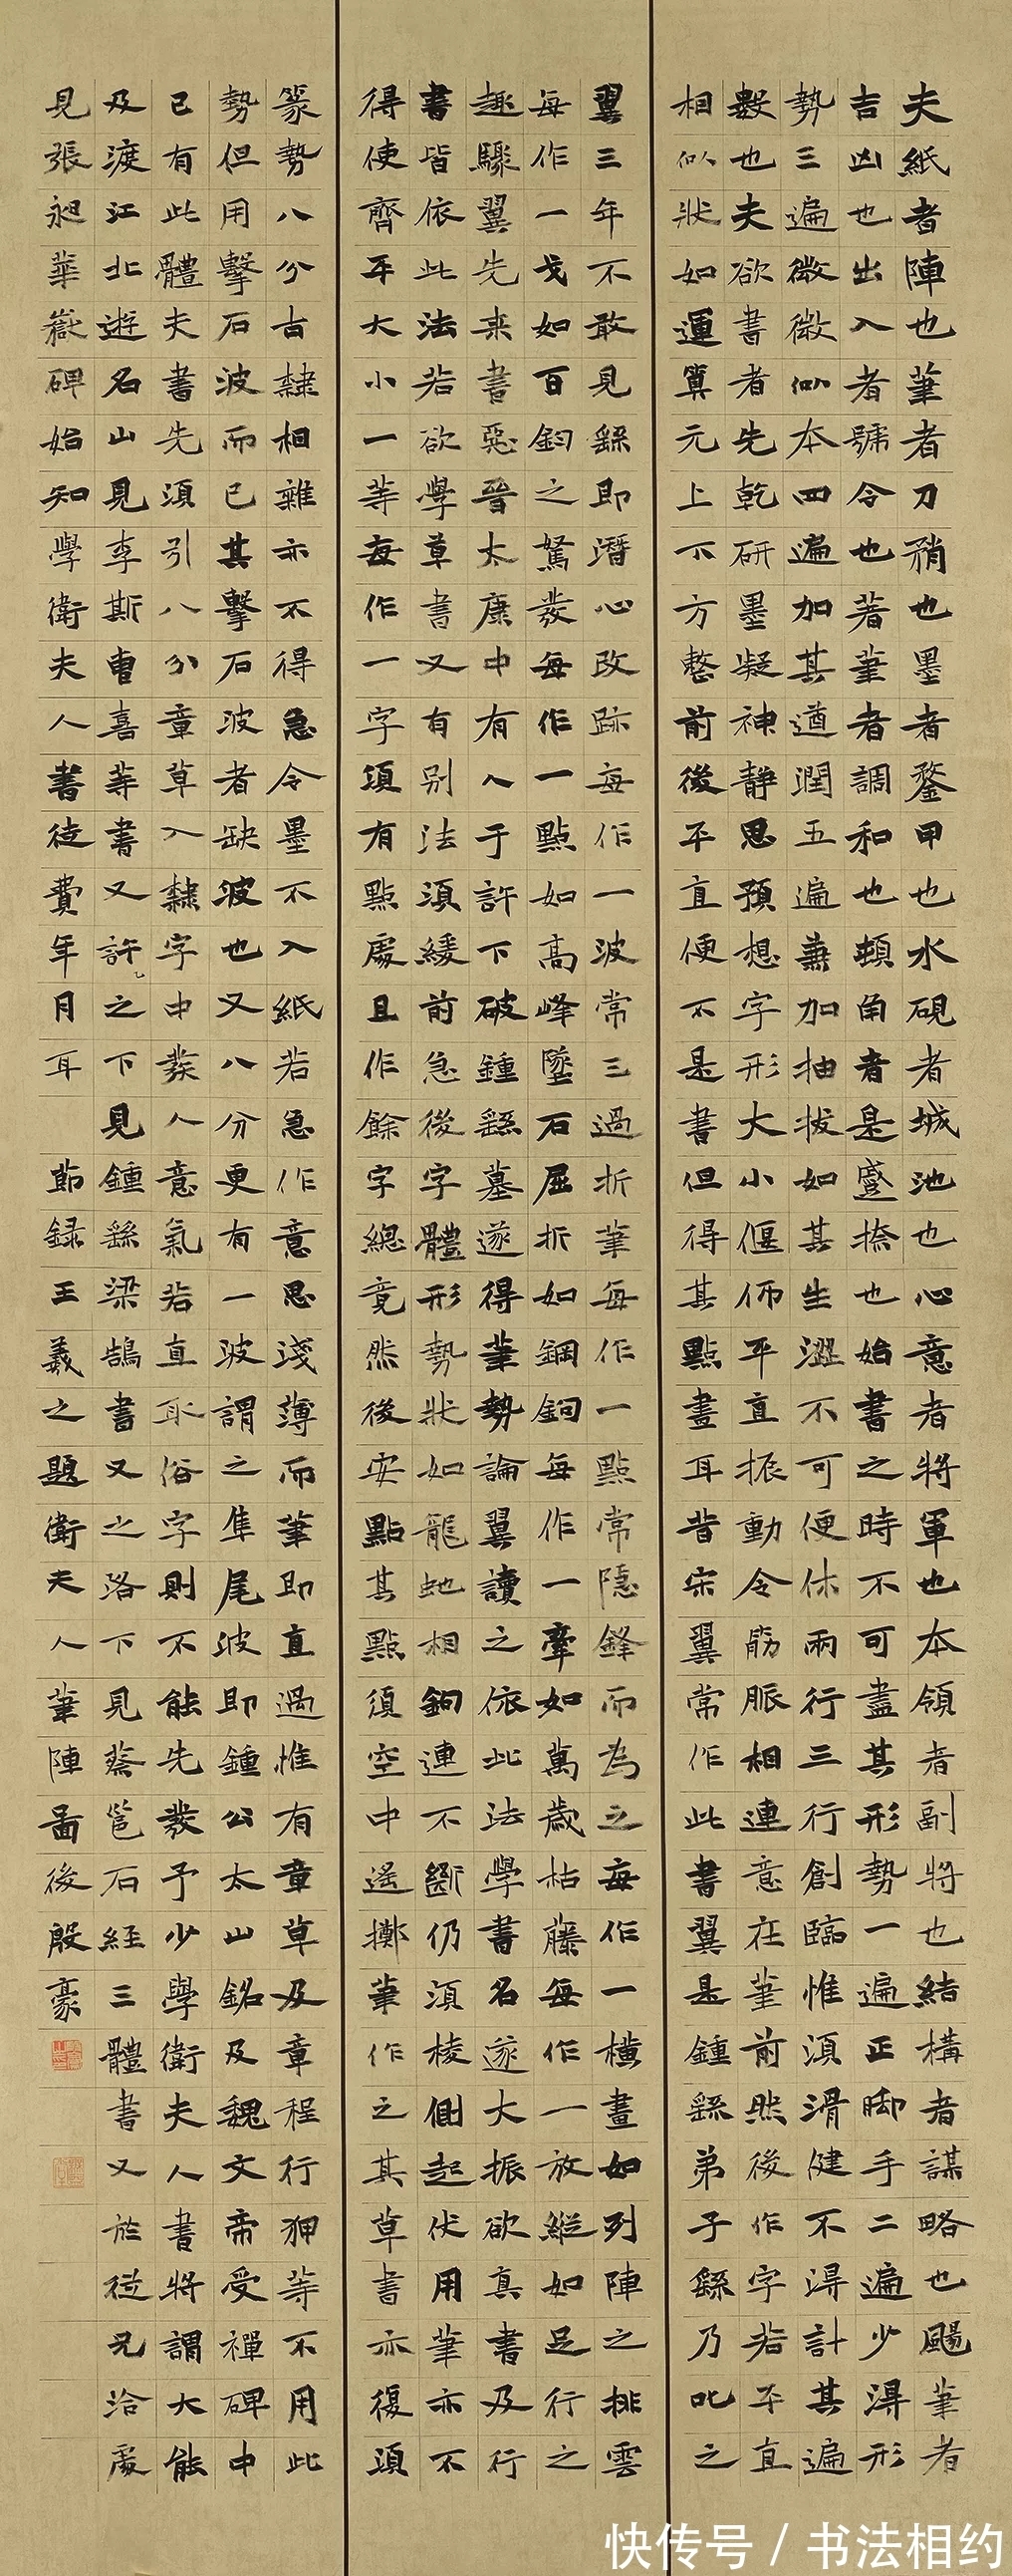 夫紙者陣也筆者刀矟也墨者鍪甲也水硯者城池也心意者將軍也本領者副將也結構者謀略也颺筆者
吉凶也出入者號令也著筆者調和也頓角者是蹙捺也始書之時不可盡其形勢一遍正腳手二遍少得形
勢三遍微微似本四遍加其遒潤五遍兼加抽拔如其生澀不可便休兩行三行創臨惟須滑健不得計其遍
數也夫欲書者先乾研墨凝神靜思預想字形大小偃仰平直振動令筋脈相連意在筆前然後作字若平直
相似狀如運算元上下方整前後平直便不是書但得其點畫耳昔宋翼常作此書翼是鍾繇弟子繇乃叱之
翼三年不敢見繇即潛心改跡每作一波常三過折筆每作一點常隱鋒而為之每作一橫畫如列陣之排雲
每作一戈如百鈞之駑發每作一點如高峰墜石屈折如鋼鉤每作一牽如萬歲枯藤每作一放縱如足行之
趣驟翼先來書惡晉太康中有人于許下破鍾繇墓遂得筆勢論翼讀之依此法學書名遂大振欲真書及行
書皆依此法若欲學草書又有别法須緩前急後字體形勢狀如龍蛇相鉤連不斷仍須棱側起伏用筆亦不
得使齊平大小一等每作一字須有點處且作餘字總竟然後安點其點須空中遙擲筆作之其草書亦復須
篆勢八分古隸相雜亦不得急令墨不入紙若急作意思淺薄而筆即直過惟有章草及章程行狎等不用此
勢但用擊石波而已其擊石波者缺波也又八分更有一波謂之隼尾波即鍾公太山銘及魏文帝受禪碑中
已有此體夫書先須引八分章草入隸字中發人意氣若直取俗字則不能先發予少學衛夫人書將謂大能
及渡江北遊名山見李斯曹喜等書又許之下見鍾繇梁鵠書又之洛下見蔡邕石經三體書又於從兄洽處
見張昶華嶽碑始知學衛夫人書徒費年月耳 節録王羲之題衛夫人筆陣圖後殷豪
快传号/书法相约